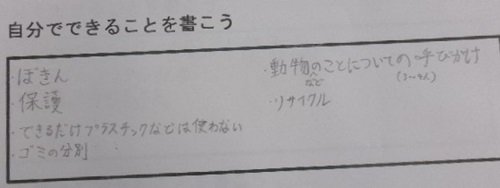 自分でできることを書こう
・ぼきん
・保護
・できるだけプラスチックなどは使わない
・ゴミの分別
・動物のことについての呼びかけ
など
・リサイクル